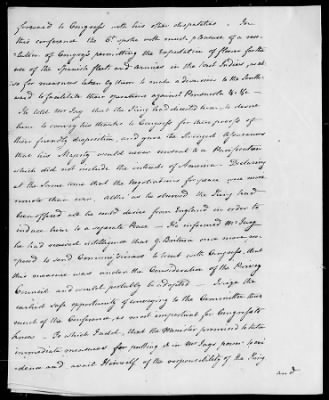 forward to Congress with his other dispatches — In
this conference the Ct spoke with much pleasure of a reso-
lution of Congress permitting the exportation of flour for the
use of the Spanish fleets and armies in the West Indies, and
so far moreover taken by them to make a diversion to the South-
ward to facilitate their operations against Pensacola &c &c —
He told Mr Jay that the King had directed him, to desire
him to convey his thanks to Congress for those proofs of
their friendly disposition, and gave the strongest assurances
that his Majesty would never consent to a Pacification
which did not include the interests of America. Declaring
at the same time that the Negotiations for peace was more
remote than ever, altho' as he observed the King had
been offered all he could desire from England in order to
induce him to a separate Peace — He informed Mr Jay
he had received intelligence that G Britain once more pro-
posed to send Commissioners to treat with Congress, that
this measure was under the Consideration of the Privy
Council and would probably be adopted — I seize the
earliest safe opportunity of conveying to the Committee thus
much of the Conference, as most important for Congress to
know — To which I add, that the Minister promised to take
immediate measures for putting it in Mr Jays power to
and avail Himself of the responsibility of the King
and